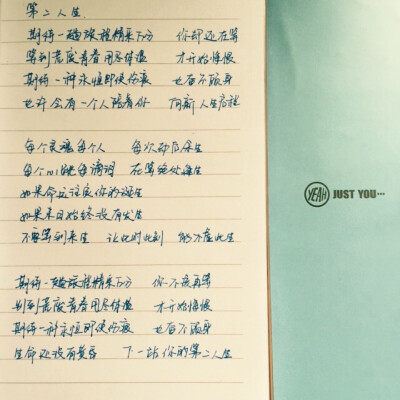 第二人生.
期待一趟旅程精采万分 你却还在等
等到荒废青春用尽体温 才开始悔恨
期待一种永恒即使伤痕 也奋不顾身
也许会有一个人陪着你 向新人生启程
每个灵魂每个人 每次劫后余生
每个心跳每滴泪 在等绝处逢生
如果命运注定你的诞生
如果末日始终没有发生
不要等到来生 让此时此刻 能不虚此生
期待一趟旅程精采万分 你不该再等
别到荒废青春用尽体温 才开始悔恨
期待一种永恒即使伤痕 也奋不顾身
生命还没有黄昏 下一站你的第二人生
YEAH JUST YOU...